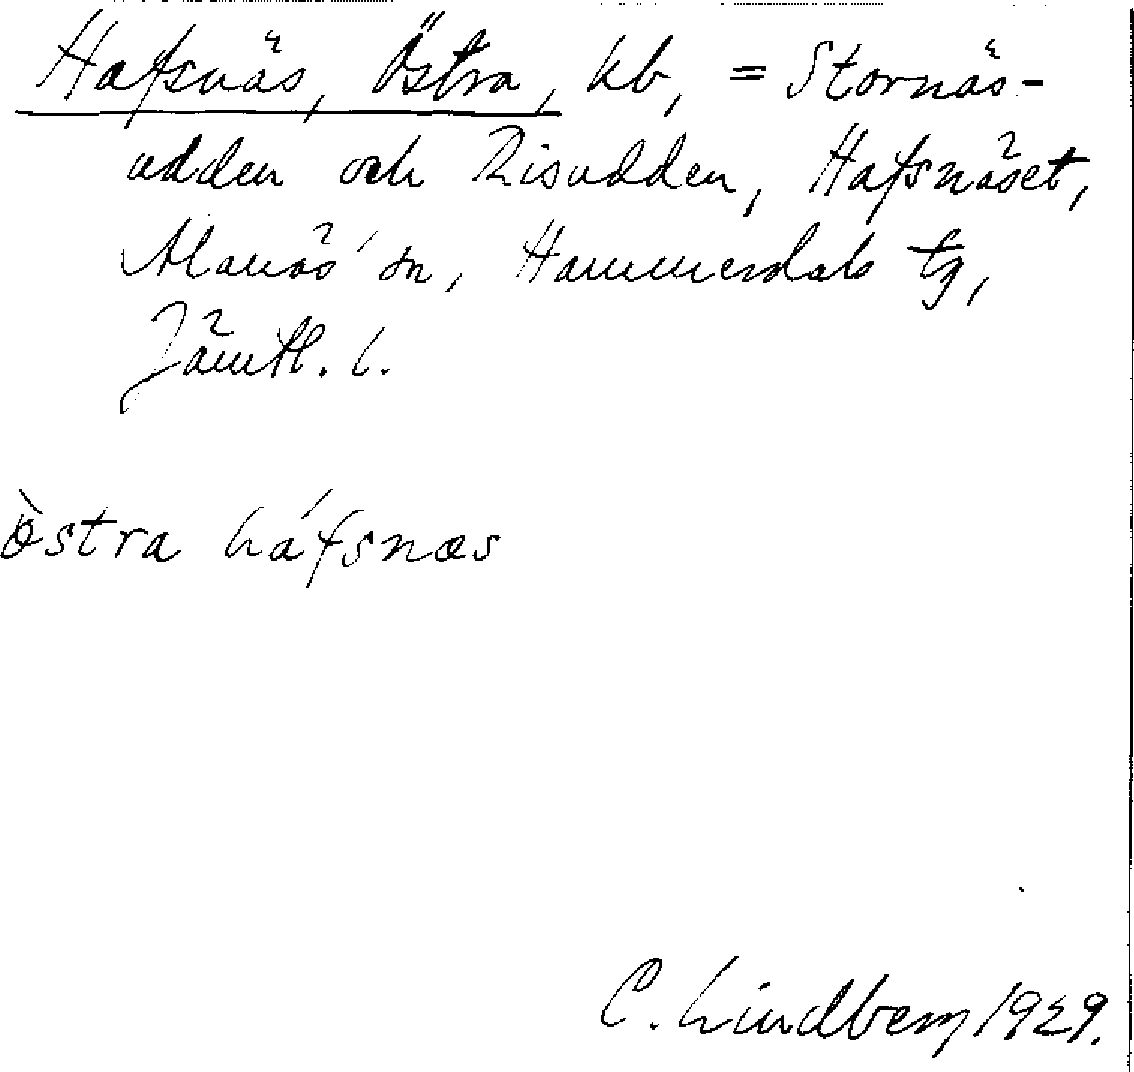 Hafsnäs, Östra, kb, = Stornäs-
udden och Risudden, Hafsnäset,
Alanäs' sn, Hammerdals tg,
Jämtl. l.
òstra háfsnæs
C. Lindberg 1929.